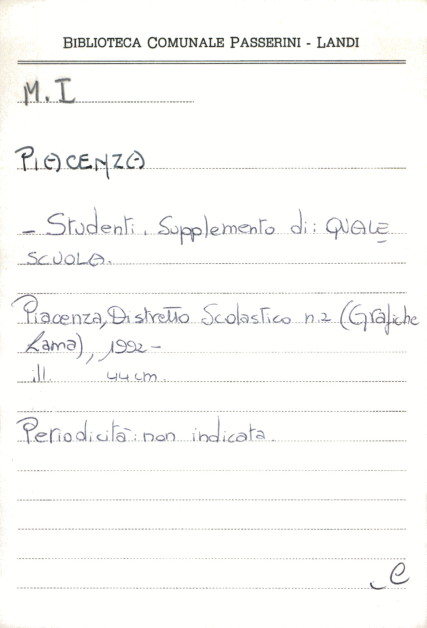 BIBLIOTECA COMUNALE PASSERINI - LANDI
M. I
PIACENZA
- Studenti. Supplemento di: QUALE
SCUOLA.
Piacenza, Distretto Scolastico n.2 (Grafiche
Lama), 1992-
ill. 44 cm.
Periodicità: non indicata.
C